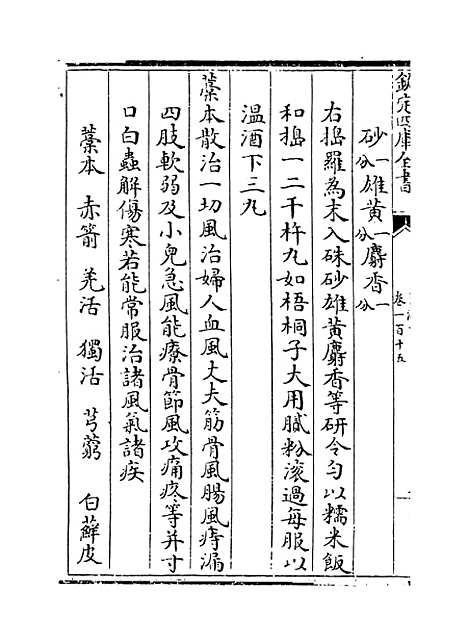 欽定四庫全書
卷一百十五
砂一分雄黄一分麝香一分
右搗羅為末入硃砂雄黄麝香等研令勻以糯米飯
和搗一二千杵丸如梧桐子大用膩粉滚過每服以
温酒下三丸
藁本散治一切風治婦人血風丈夫筋骨風腸風痔漏
四肢軟弱及小兒急風能療骨節風攻痛疼等并寸
口白蟲解傷寒若能常服治諸風氣諸疾
藁本　赤箭　羌活　獨活　芎藭　白蘚皮